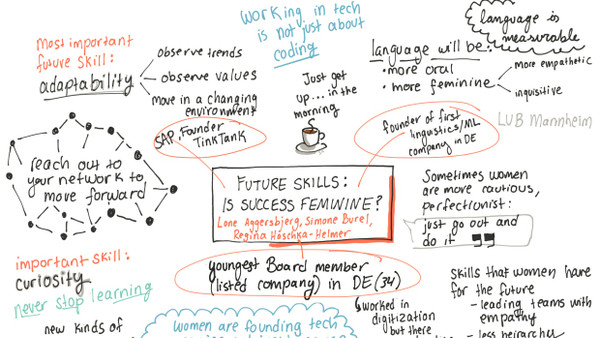 Working in tech
is not just about
coding
language is
measurable
Most important
future skill:
adaptability
observe trends
observe values
move in a changing
environment
Just get
up... in the
morning
language will be:
• more oral
• more feminine
more empathetic
inquisitive
LUB Mannheim
SAP, Founder
TinkTank
founder of first
linguistics/ML
company in DE
reach out to
your network to
move forward
FUTURE SKILLS:
IS SUCCESS FEMININE?
Lone Aggersbjerg, Simone Burel,
Regina Hoschka-Helmer
Sometimes women
are more cautious,
perfectionist:
just go out and
do it "
important skill:
curiosity
never stop learning
youngest Board member
(listed company) in DE (34)
worked in
digitization
but there
Skills that women have
for the future
- leading teams with
empathy
- less heirarchy
new kinds of
women are founding tech